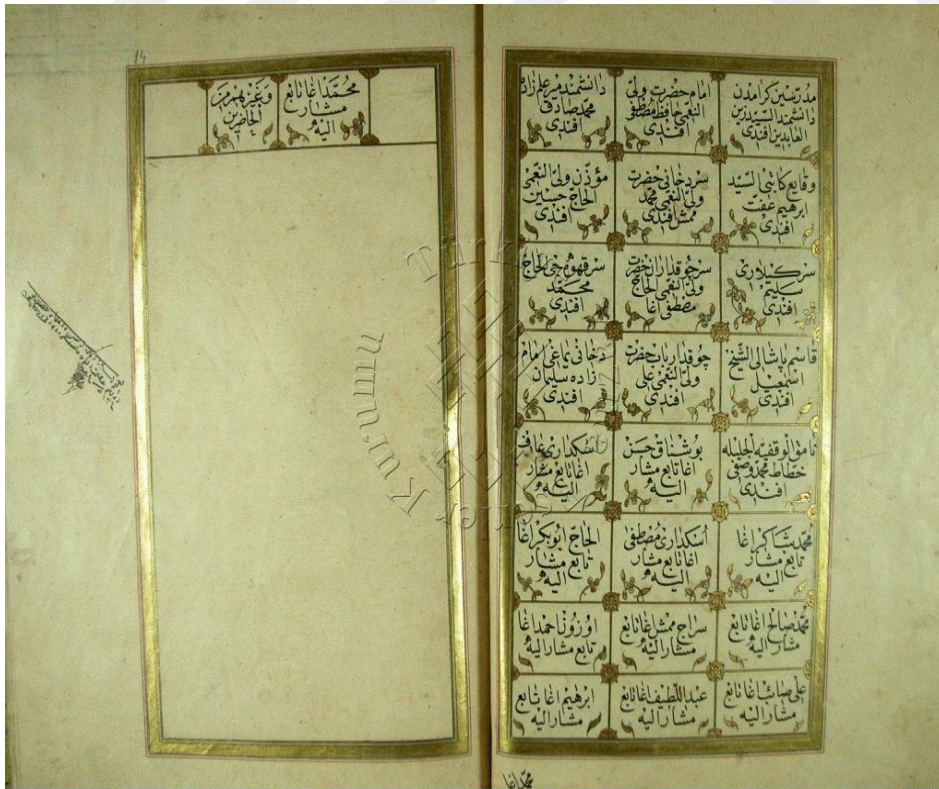 مدرسین کرامدن
دانشمند السید زین
العابدین افندی
امام حضرت ولی
النعمی حافظ مصطفی
افندی
دانشمند میر علم زاده
محمد صادق
افندی
وقایع کاتبی السید
ابرهیم عفت
افندی
سر دخانی حضرت
ولی النعمی محمد
ممش افندی
مؤذن ولی النعمی
الحاج حسین
افندی
سر کیلاری
سلیم
افندی
سر چوقداران حضرت
ولی النعمی الحاج
مصطفی اغا
سر قهوه جی الحاج
محمد
افندی
قاسم پاشالی الشیخ
اسمعیل
افندی
چوقدار باب حضرت
ولی النعمی علی
افندی
دخانی یماغی امام
زاده سلیمان
افندی
الوقفیه الجلیله
خطاط محمد وصفی
افندی
بوشناق حسن
اغا تابع مشار
الیه
اسکداری عارف
اغا تابع مشار
الیه
محمد شاکر اغا
تابع مشار
الیه
اسکداری مصطفی
اغا تابع مشار
الیه
الحاج ابوبکر اغا
تابع مشار
الیه
محمد صالح اغا تابع
مشار الیه
سراج ممش اغا تابع
مشار الیه
اوزون احمد اغا
تابع مشار الیه
علی صائب اغا تابع
مشار الیه
عبد اللطیف اغا تابع
مشار الیه
ابرهیم اغا تابع
مشار الیه
محمد اغا
14
محمد اغا تابع
مشار
الیه
وغیرهم من
الحاضرین
Türk
Kurumu